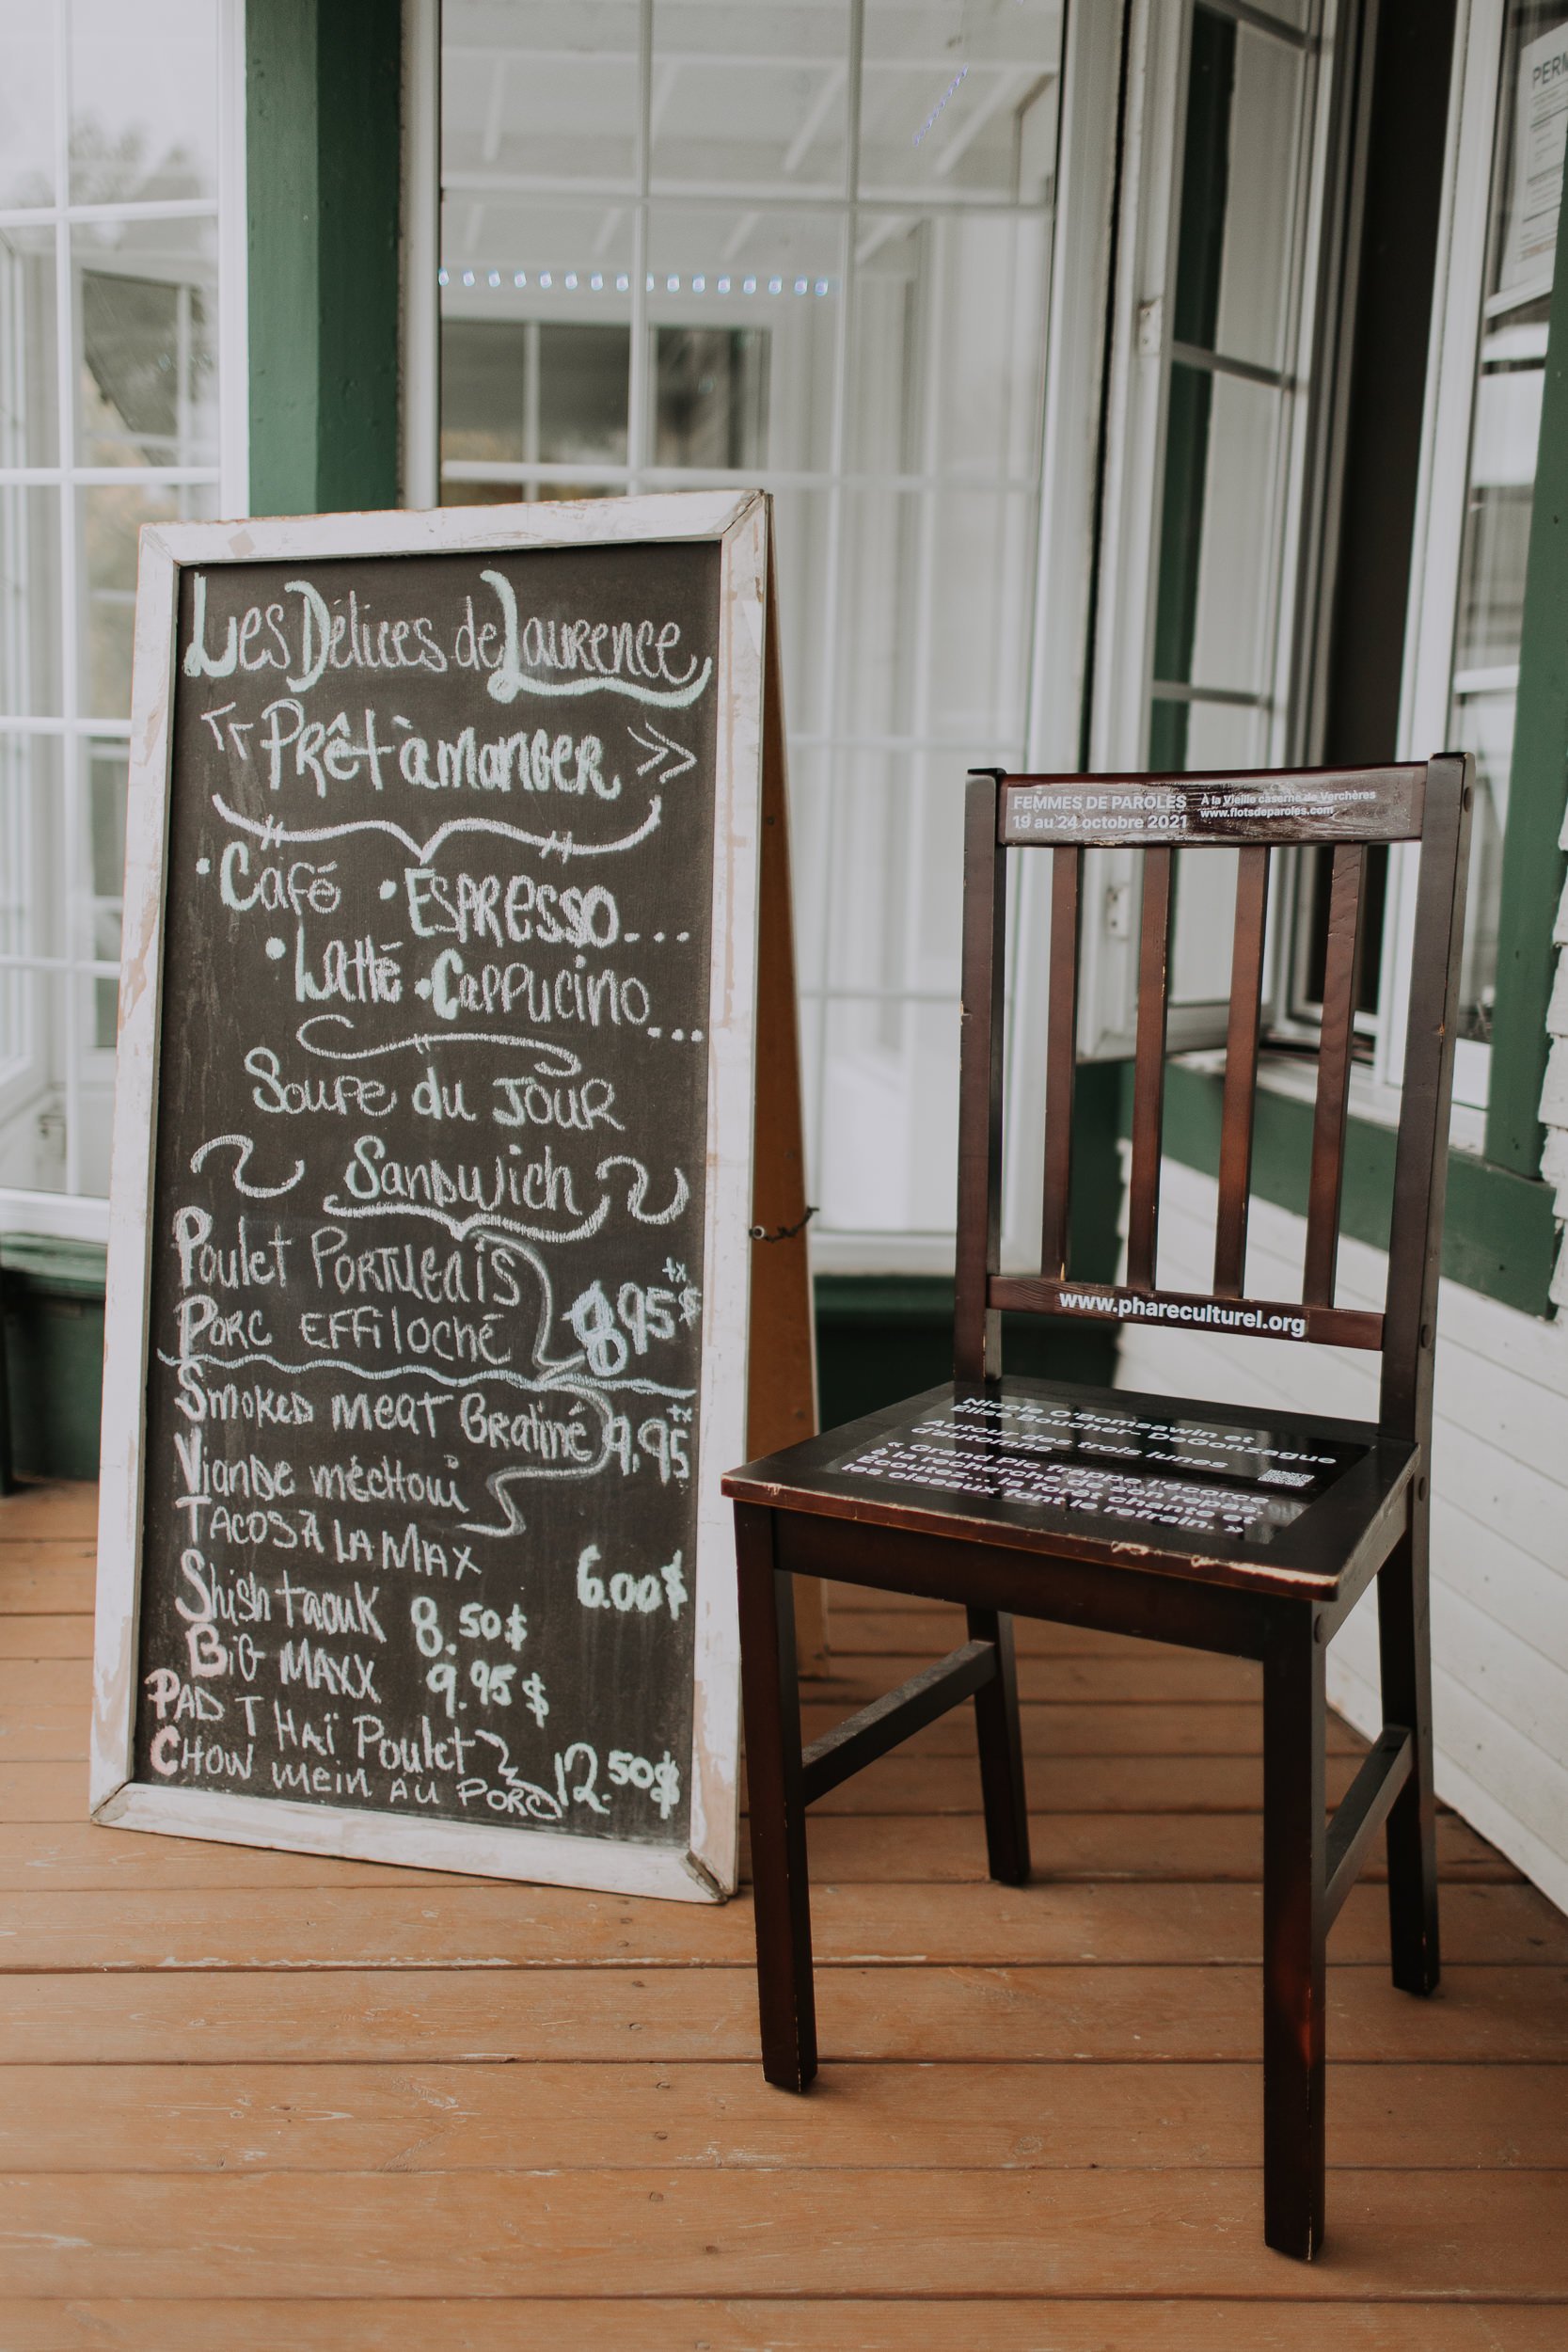 Les Délices de Laurence
« Prêt à manger »
• Café • Espresso...
• Latté • Cappucino...
Soupe du jour
Sandwich
Poulet Portugais
Porc effiloché
8.95$ +tx
Smoked meat Gratiné 9.95 +tx
Viande méchoui
Tacos à la Max
6.00$
Shish taouk 8.50$
Big Maxx 9.95$
Pad Thaï Poulet
Chow mein au porc 12.50$
FEMMES DE PAROLES
19 au 24 octobre 2021
À la Vieille caserne de Verchères
www.flotsdeparoles.com
www.phareculturel.org
Nicole O'Bomsawin et
Élise Boucher-DeGonzague
Autour des trois lunes
d'automne
« Grand Pic frappe l'écorce
à la recherche de son repas.
Écoutez... la forêt chante et
les oiseaux font le refrain. »
PERM